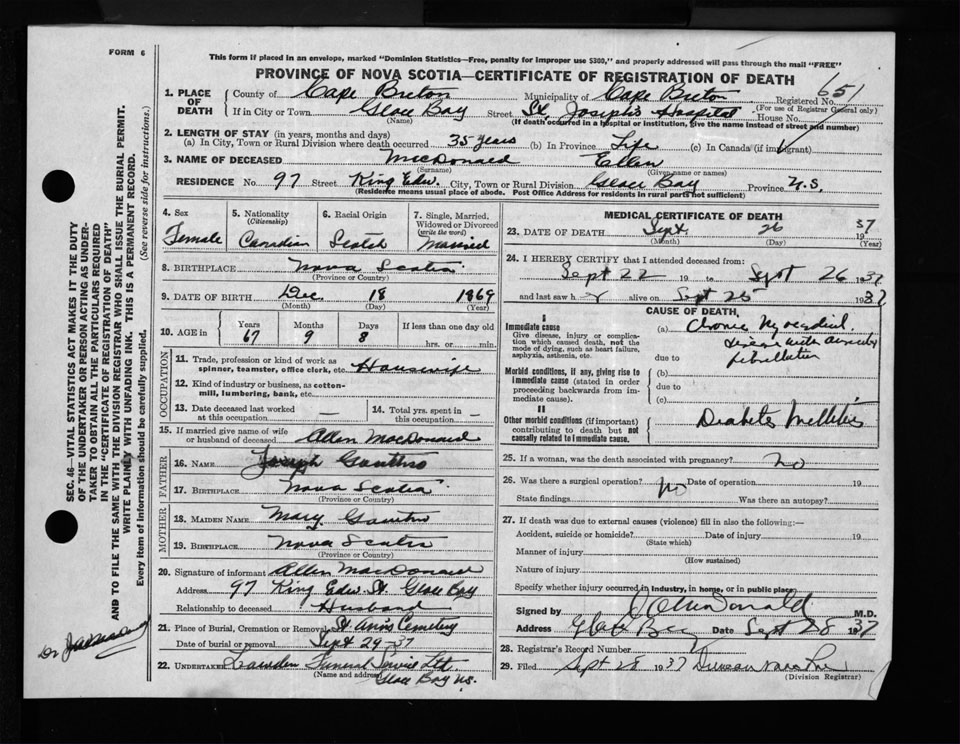 FORM 6
This form if placed in an envelope, marked "Dominion Statistics—Free, penalty for improper use $300," and properly addressed will pass through the mail "FREE"
PROVINCE OF NOVA SCOTIA—CERTIFICATE OF REGISTRATION OF DEATH
651
1. PLACE OF DEATH
County of Cape Breton Municipality of Cape Breton Registered No.
(For use of Registrar General only)
If in City or Town Glace Bay Street St. Joseph's Hospital House No.
(Name) (If death occurred in a hospital or institution, give the name instead of street and number)
2. LENGTH OF STAY (in years, months and days)
(a) In City, Town or Rural Division where death occurred 35 years (b) In Province Life (c) In Canada (if immigrant)
3. NAME OF DECEASED MacDonald Ellen
(Surname) (Given name or names)
RESIDENCE No. 97 Street King Edw. City, Town or Rural Division Glace Bay Province N.S.
(Residence means usual place of abode. Post Office Address for residents in rural parts not sufficient)
4. Sex Female
5. Nationality (Citizenship) Canadian
6. Racial Origin Scotch
7. Single, Married, Widowed or Divorced (write the word) Married
8. BIRTHPLACE Nova Scotia
(Province or Country)
9. DATE OF BIRTH Dec. 18 1869
(Month) (Day) (Year)
10. AGE in Years 67 Months 9 Days 8 If less than one day hrs. or min.
OCCUPATION
11. Trade, profession or kind of work as spinner, teamster, office clerk, etc. Housewife
12. Kind of industry or business, as cotton-mill, lumbering, bank, etc.
13. Date deceased last worked at this occupation —
14. Total yrs. spent in this occupation —
15. If married give name of wife or husband of deceased Allen MacDonald
FATHER
16. NAME Joseph Gouthro
17. BIRTHPLACE Nova Scotia
(Province or Country)
MOTHER
18. MAIDEN NAME Mary Gouthro
19. BIRTHPLACE Nova Scotia
(Province or Country)
20. Signature of informant Allen MacDonald
Address 97 King Edw. St. Glace Bay
Relationship to deceased Husband
21. Place of Burial, Cremation or Removal St. Ann's Cemetery
Date of burial or removal Sept 29 - 37
22. UNDERTAKER Funeral Service Ltd.
(Name and address) Glace Bay N.S.
MEDICAL CERTIFICATE OF DEATH
23. DATE OF DEATH Sept. 26 1937
(Month) (Day) (Year)
24. I HEREBY CERTIFY that I attended deceased from:
Sept 22 19 to Sept 26 1937
and last saw her alive on Sept 25 1937
CAUSE OF DEATH
I
Immediate cause
Give disease, injury or complication which caused death, not the mode of dying, such as heart failure, asphyxia, asthenia, etc.
(a) Chronic Myocardial
disease with auricular
due to fibrillation
Morbid conditions, if any, giving rise to immediate cause (stated in order proceeding backwards from immediate cause).
(b)
due to
(c)
II
Other morbid conditions (if important) contributing to death but not causally related to immediate cause.
Diabetes Mellitus
25. If a woman, was the death associated with pregnancy? No
26. Was there a surgical operation? No Date of operation 19
State findings Was there an autopsy?
27. If death was due to external causes (violence) fill in also the following:—
Accident, suicide or homicide? Date of injury 19
(State which)
Manner of injury
(How sustained)
Nature of injury
Specify whether injury occurred in industry, in home, or in public place
Signed by MacDonald M.D.
Address Glace Bay Date Sept 28 1937
28. Registrar's Record Number
29. Filed Sept 28 1937 Duncan
(Division Registrar)
SEC. 46—VITAL STATISTICS ACT MAKES IT THE DUTY
OF THE UNDERTAKER OR PERSON ACTING AS UNDERTAKER TO OBTAIN ALL THE PARTICULARS REQUIRED
IN THE "CERTIFICATE OF REGISTRATION OF DEATH"
AND TO FILE THE SAME WITH THE DIVISION REGISTRAR WHO SHALL ISSUE THE BURIAL PERMIT.
WRITE PLAINLY WITH UNFADING INK. THIS IS A PERMANENT RECORD.
Every item of information should be carefully supplied. (See reverse side for instructions.)
Dr